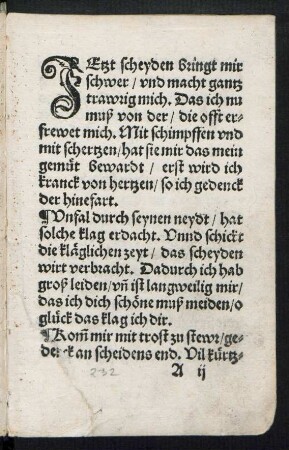 JEtzt scheyden bringt mir
schwer / vnd macht gantz
trawrig mich. Das ich nu
muß von der / die offt er-
frewet mich. Mit schimpffen vnd
mit schertzen / hat sie mir das mein
gemüt bewardt / erst wird ich
kranck von hertzen / so ich gedenck
der hinefart.
¶Vnfal durch seynen neydt / hat
solche klag erdacht. Vnnd schickt
die kläglichen zeyt / das scheyden
wirt verbracht. Dadurch ich hab
groß leiden / vñ ist langweilig mir /
das ich dich schöne muß meiden / o
glück das klag ich dir.
¶Kom̃ mir mit trost zu stewr / ge-
denck an scheidens end. Vil kürtz-
232 A ij